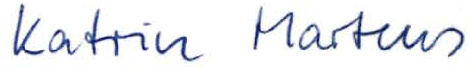 Katrin Martens